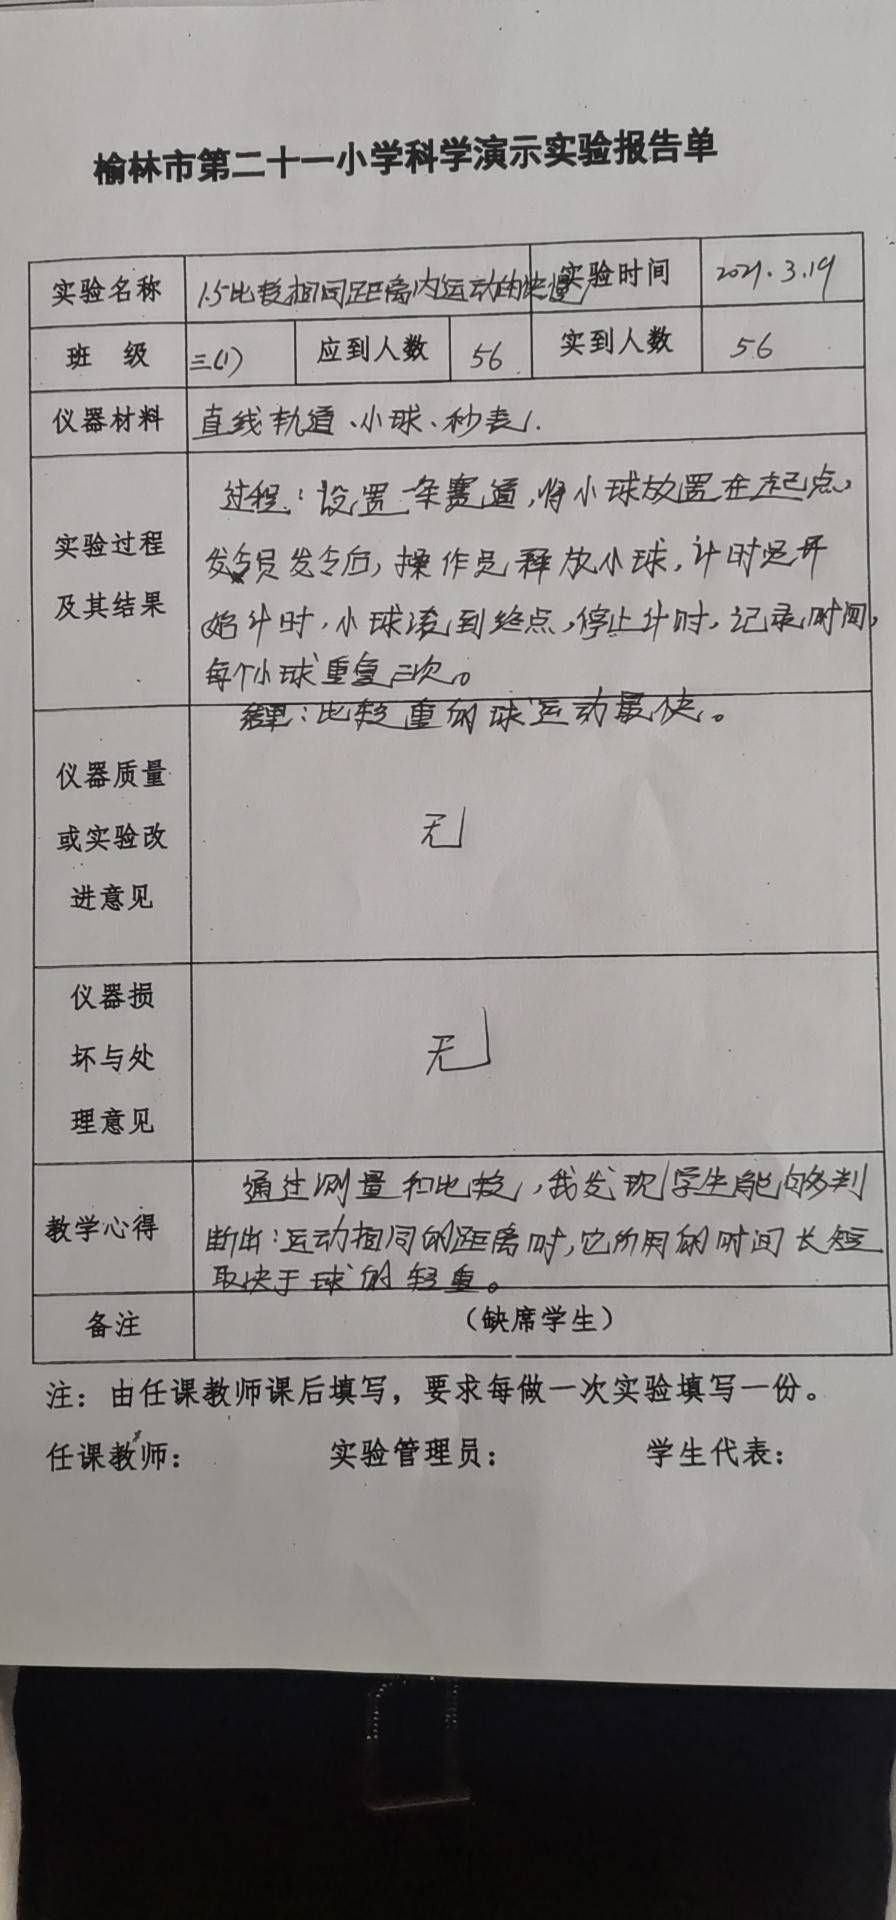 榆林市第二十一小学科学演示实验报告单
实验名称 1.5比较相同距离内运动的快慢 实验时间 2021.3.19
班 级 三(1) 应到人数 56 实到人数 56
仪器材料 直线轨道、小球、秒表.
实验过程
及其结果
过程:设置一条赛道,将小球放置在起点,
发令员发令后,操作员释放小球,计时员开
始计时,小球滚到终点,停止计时,记录时间,
每个小球重复三次。
结果:比较重的球运动最快。
仪器质量
或实验改
进意见
无
仪器损
坏与处
理意见
无
教学心得
通过测量和比较,我发现学生能够判
断出:运动相同的距离时,它所用的时间长短
取决于球的轻重。
备注 (缺席学生)
注:由任课教师课后填写,要求每做一次实验填写一份。
任课教师: 实验管理员: 学生代表: